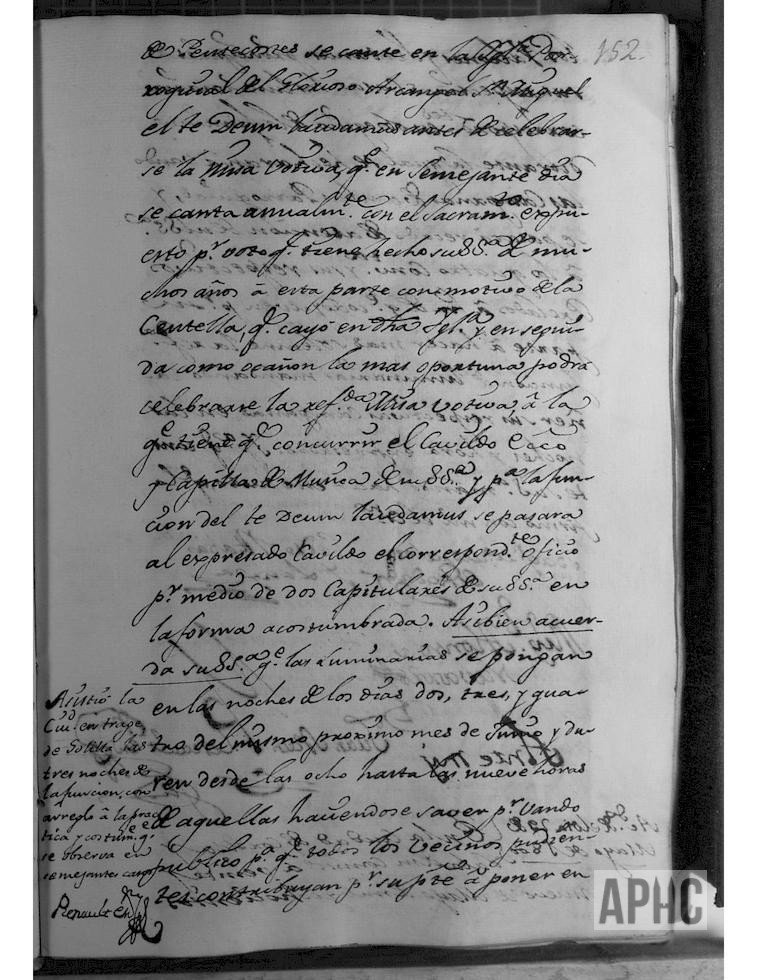 152.
de Pentecostes se cante en la Ygla Par-
roquial del Glorioso Arcangel Sn. Miguel
el te Deum laudamus antes de celebrar-
se la Misa Votiva, qe. en semejante dia
se canta anualmte. con el Sacramto. expu-
esto pr. voto qe. tiene hecho su SSa. de mu-
chos años à esta parte con motivo de la
Centella, qe. cayó en dha Ygla. y en segui-
da como ocasion la mas oportuna podrá
celebrarse la refda. Misa Votiva à la
qe. tiene qe. concurrir el Cavildo Ecco
y Capilla de Musica de su SSa. y pa. la fun-
cion del te Deum laudamus se pasara
al expresado Cavildo el correspondte. oficio
pr. medio de dos Capitulares de su SSa. en
la forma acostumbrada. Asibien acuer-
da su SSa. qe. las Luminarias se pongan
en las noches de los dias dos, tres, y qua-
tro del mismo proximo mes de Junio y du-
ren desde las ocho hasta las nueve horas
de aquellas haciendose saver pr. Vando
publico pa. qe. todos los Vecinos pudien-
tes contribuyan pr. su pte. à poner en
Asistió la
Ciud. en trage
de Golilla las
tres noches de
la funcion, con
arreglo à la prac
tica y costumbe. qe.
se observa en
semejante caso
Renault
Ante mi
APHC